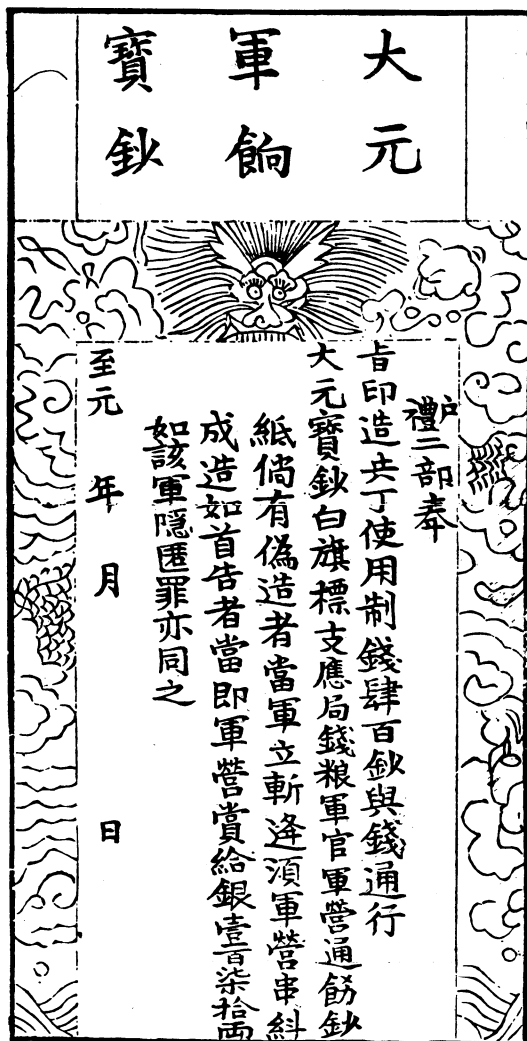 大元
軍餉
寶鈔
戶禮二部奉
旨印造兵丁使用制錢肆百鈔與錢通行
大元寶鈔白旗標支應局錢粮軍官軍營通飭鈔
紙倘有偽造者當軍立斬逄須軍營串糾
成造如首告者當即軍營賞給銀壹百柒拾兩
如該軍隱匿罪亦同之
至元 年 月 日